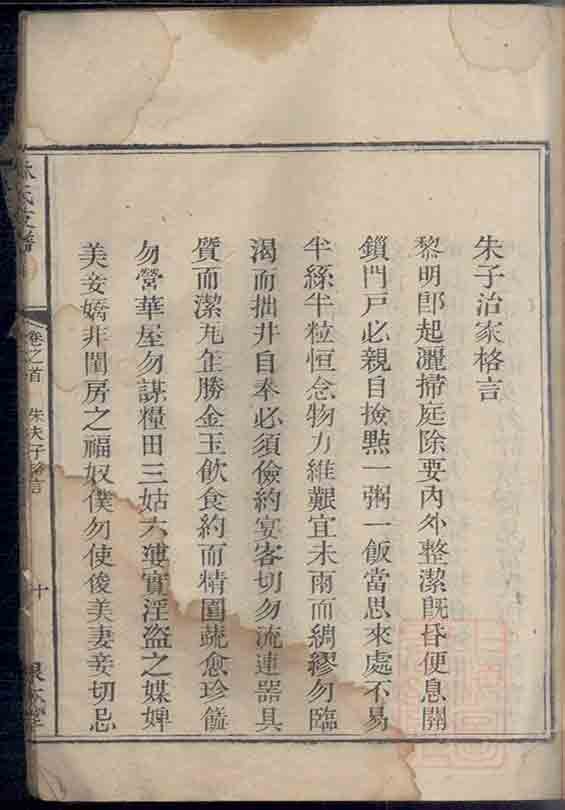 朱子治家格言
黎明卽起灑掃庭除要內外整潔旣昏便息關
鎖門戸必親自撿點一粥一飯當思來處不易
半絲半粒恒念物力維艱宜未雨而綢繆勿臨
渴而掘井自奉必須儉約宴客切勿流連器具
質而潔瓦缶勝金玉飲食約而精園蔬愈珍饈
勿營華屋勿謀糧田三姑六婆實淫盜之媒婢
美妾嬌非閨房之福奴僕勿使俊美妻妾切忌
卷之首 朱夫子格言 十